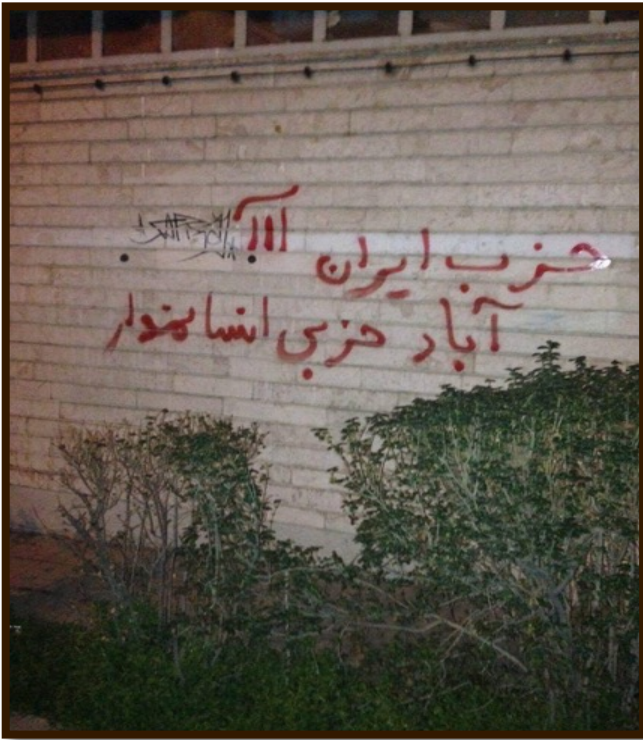 حزب ایران
آباد حزبی انسانخوار